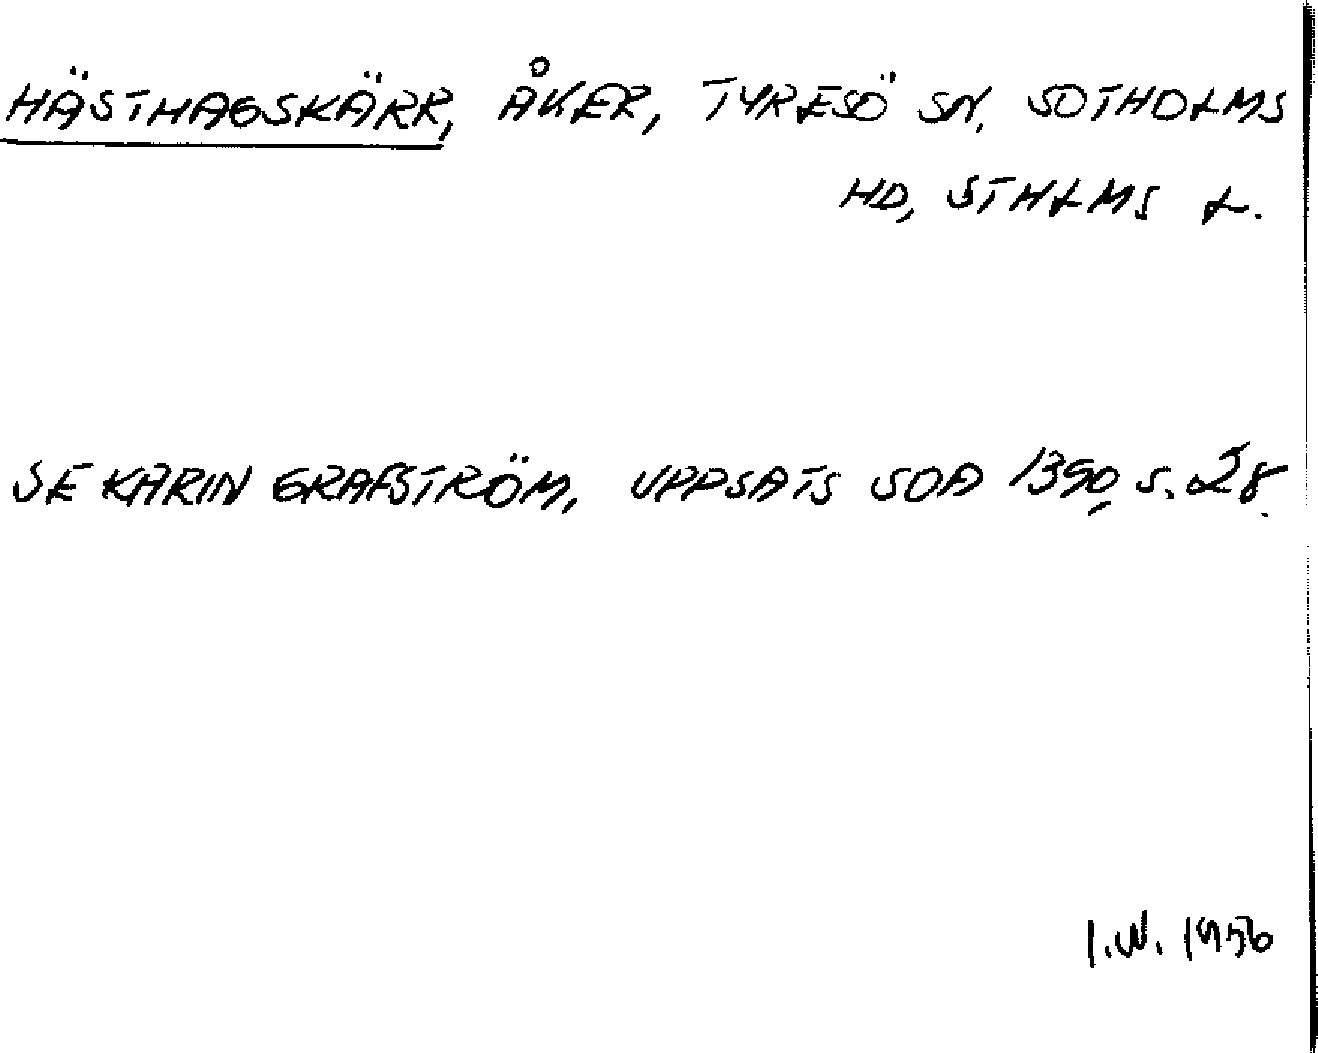 HÄSTHAGSKÄRR, ÅKER, TYRESÖ SN, SOTHOLMS
HD, STHLMS L.
SE KARIN GRAFSTRÖM, UPPSATS SOA 1390, S. 28.
I.W. 1956